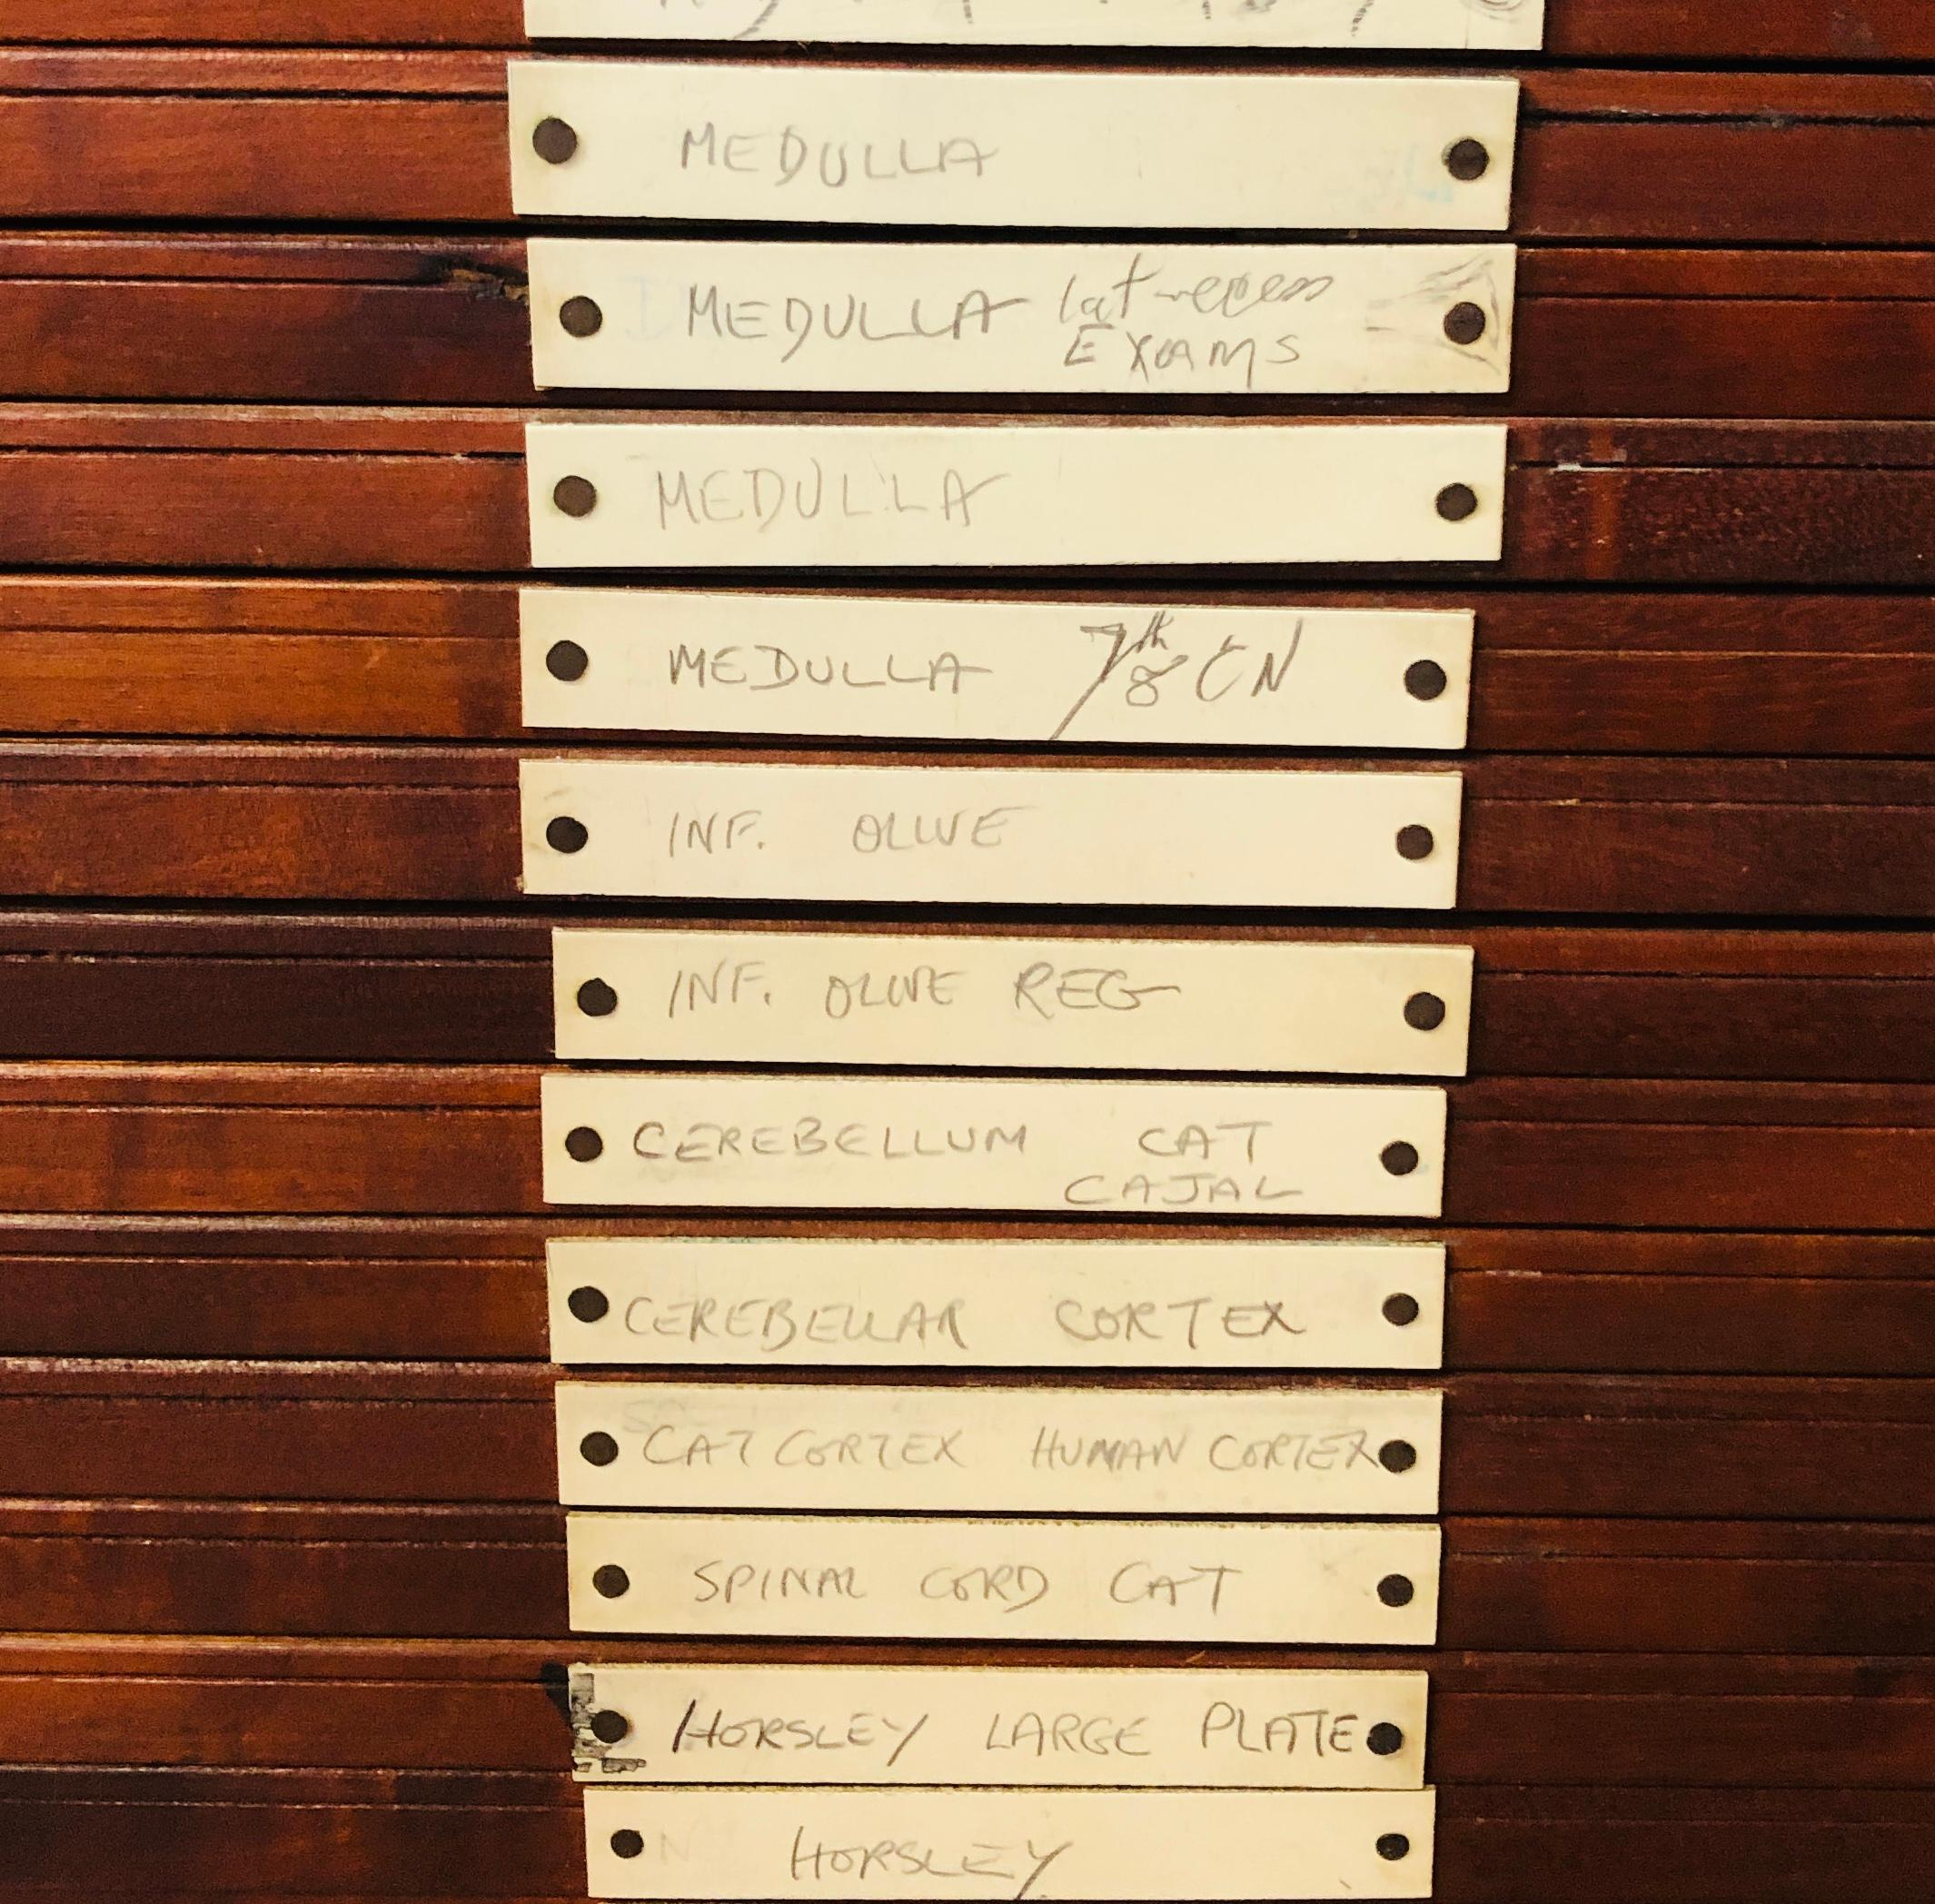 MEDULLA
MEDULLA lat recess
EXAMS
MEDULLA
MEDULLA 7th 8 CN
INF. OLIVE
INF. OLIVE REG
CEREBELLUM CAT
CAJAL
CEREBELLAR CORTEX
CAT CORTEX HUMAN CORTEX
SPINAL CORD CAT
HORSLEY LARGE PLATE
HORSLEY